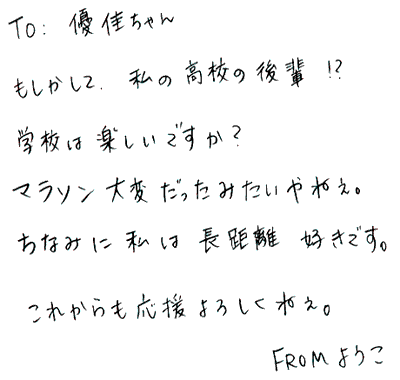 TO: 優佳ちゃん
もしかして、私の高校の後輩!?
学校は楽しいですか?
マラソン大変だったみたいやねぇ。
ちなみに私は長距離好きです。
これからも応援よろしくねぇ。
FROMようこ